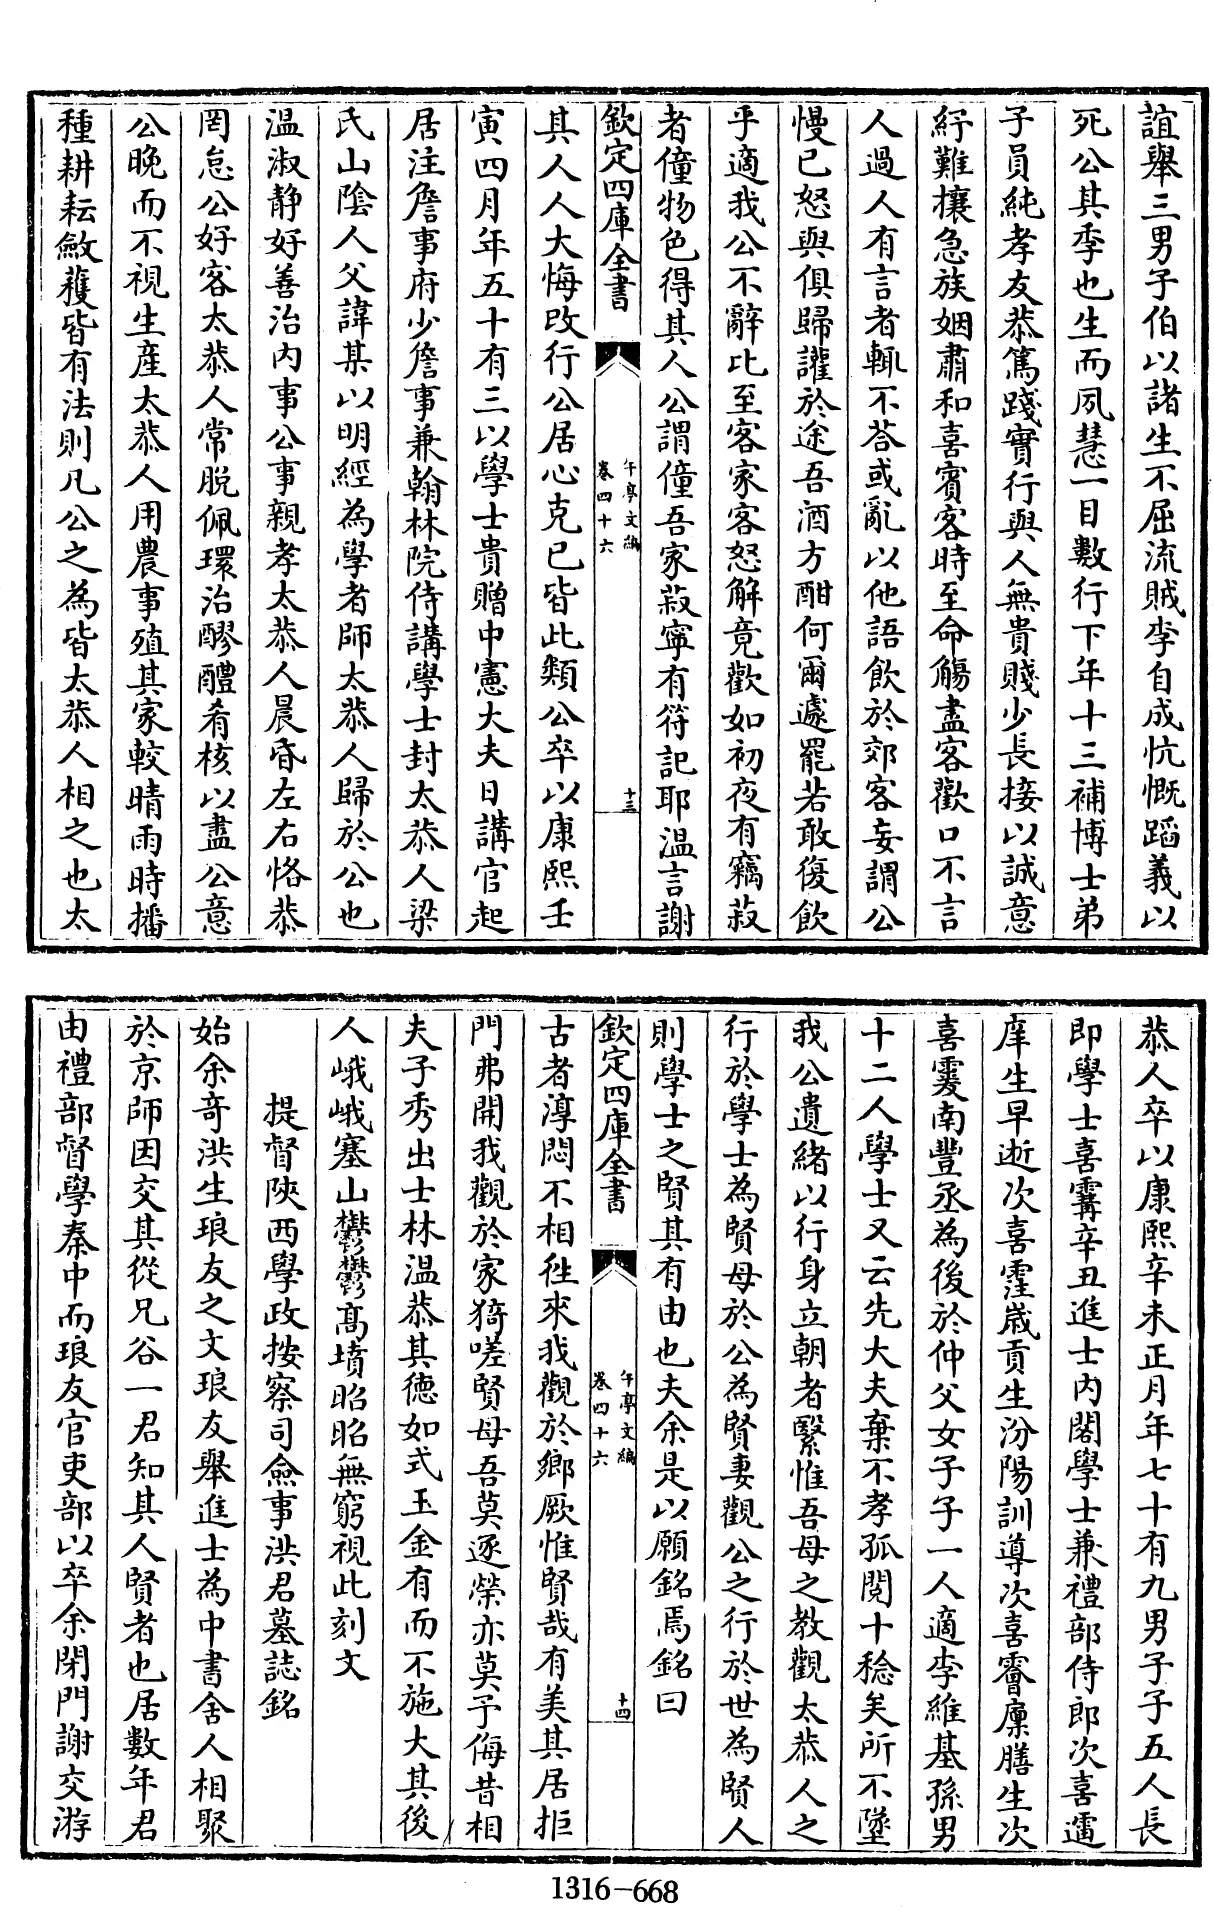 誼舉三男子伯以諸生不屈流賊李自成忼慨蹈義以
死公其季也生而夙慧一目數行下年十三補博士弟
子員純孝友恭篤踐實行與人無貴賤少長接以誠意
紓難攘急族姻肅和喜賓客時至命觴盡客歡口不言
人過人有言者輒不荅或亂以他語飲於郊客妄謂公
慢已怒與俱歸讙於途吾酒方酣何爾遽罷若敢復飲
乎適我公不辭比至客家客怒解竟歡如初夜有竊菽
者僮物色得其人公謂僮吾家菽寧有符記耶温言謝
欽定四庫全書
午亭文編
卷四十六
十三
其人人大悔改行公居心克已皆此類公卒以康熙壬
寅四月年五十有三以學士貴贈中憲大夫日講官起
居注詹事府少詹事兼翰林院侍講學士封太恭人梁
氏山陰人父諱某以明經為學者師太恭人歸於公也
温淑靜好善治内事公事親孝太恭人晨昏左右恪恭
罔怠公好客太恭人常脱佩環治醪醴肴核以盡公意
公晚而不視生產太恭人用農事殖其家較晴雨時播
種耕耘斂穫皆有法則凡公之為皆太恭人相之也太
恭人卒以康熙辛未正月年七十有九男子子五人長
即學士喜霱辛丑進士内閣學士兼禮部侍郎次喜霌
庠生早逝次喜霔歲貢生汾陽訓導次喜霤廩膳生次
喜霡南豐丞為後於仲父女子子一人適李維基孫男
十二人學士又云先大夫棄不孝孤閱十稔矣所不墜
我公遺緒以行身立朝者繄惟吾母之教觀太恭人之
行於學士為賢母於公為賢妻觀公之行於世為賢人
則學士之賢其有由也夫余是以願銘焉銘曰
欽定四庫全書
午亭文編
卷四十六
十四
古者淳悶不相徃來我觀於鄉厥惟賢哉有美其居拒
門弗開我觀於家猗嗟賢母吾莫逐榮亦莫予侮昔相
夫子秀出士林温恭其德如式玉金有而不施大其後
人峨峨塞山鬱鬱髙墳昭昭無窮視此刻文
提督陜西學政按察司僉事洪君墓誌銘
始余奇洪生琅友之文琅友舉進士為中書舍人相聚
於京師因交其從兄谷一君知其人賢者也居數年君
由禮部督學秦中而琅友官吏部以卒余閉門謝交游
1316-668